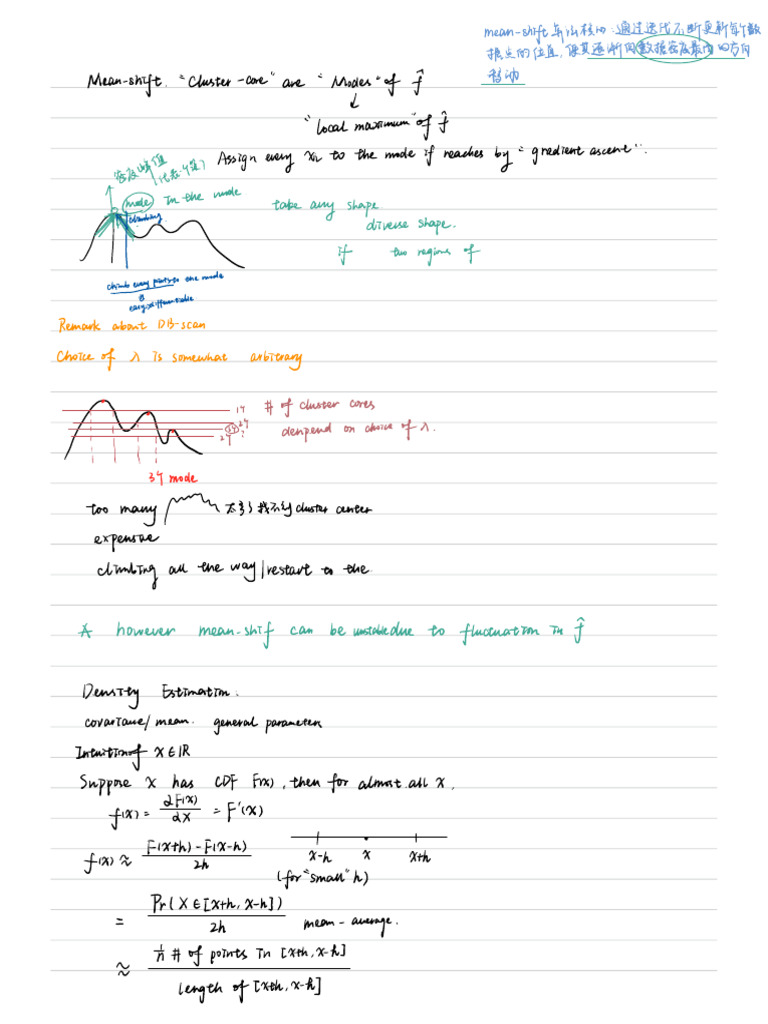 mean-shift 算法核心:通过迭代不断更新每个数
据点的位置,使其逐渐向数据密度最大的方向
移动
Mean-shift. "Cluster-core" are "Modes" of f̂
↓
"local maximum" of f̂
Assign every xi to the mode if reaches by "gradient ascent".
密度峰值
mode In the mode
climbing
take any shape
diverse shape.
if two regions of
climb every points to the mode
Remark about DB-scan
Choice of λ is somewhat arbitrary
1个
2个
3个
2个?
# of cluster cores
denpend on choice of λ.
3个 mode
too many 太多了找不到 cluster center
expensive
climbing all the way/restart to the
however mean-shif can be unstable due to fluctuation in f̂
Density Estimation.
covariance/mean. general parameters
Intuition of X∈ℝ
Suppose X has CDF F(x), then for almost all x,
f(x) = dF(x)/dx = F'(x)
f(x) ≈ F(x+h)-F(x-h)/2h
x-h x x+h
(for "small" h)
= Pr(X∈[x+h, x-h])/2h mean-average.
≈ 1/n # of points in [x+h, x-h]
length of [x+h, x-h]